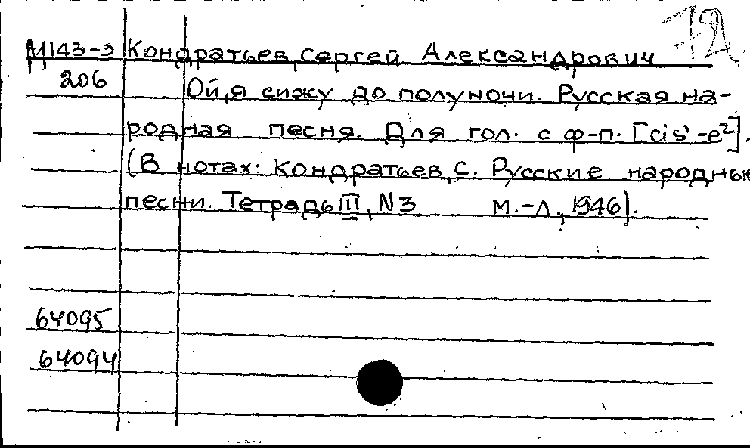 М143-3 Кондратьев, Сергей Александрович
206 Ой, я сижу до полуночи. Русская на-
родная песня. Для гол. с ф-п. [cis'-e²].
(В нотах: Кондратьев, С. Русские народны
песни. Тетрадь III, N3 М.-Л., 1946).
64095
64094